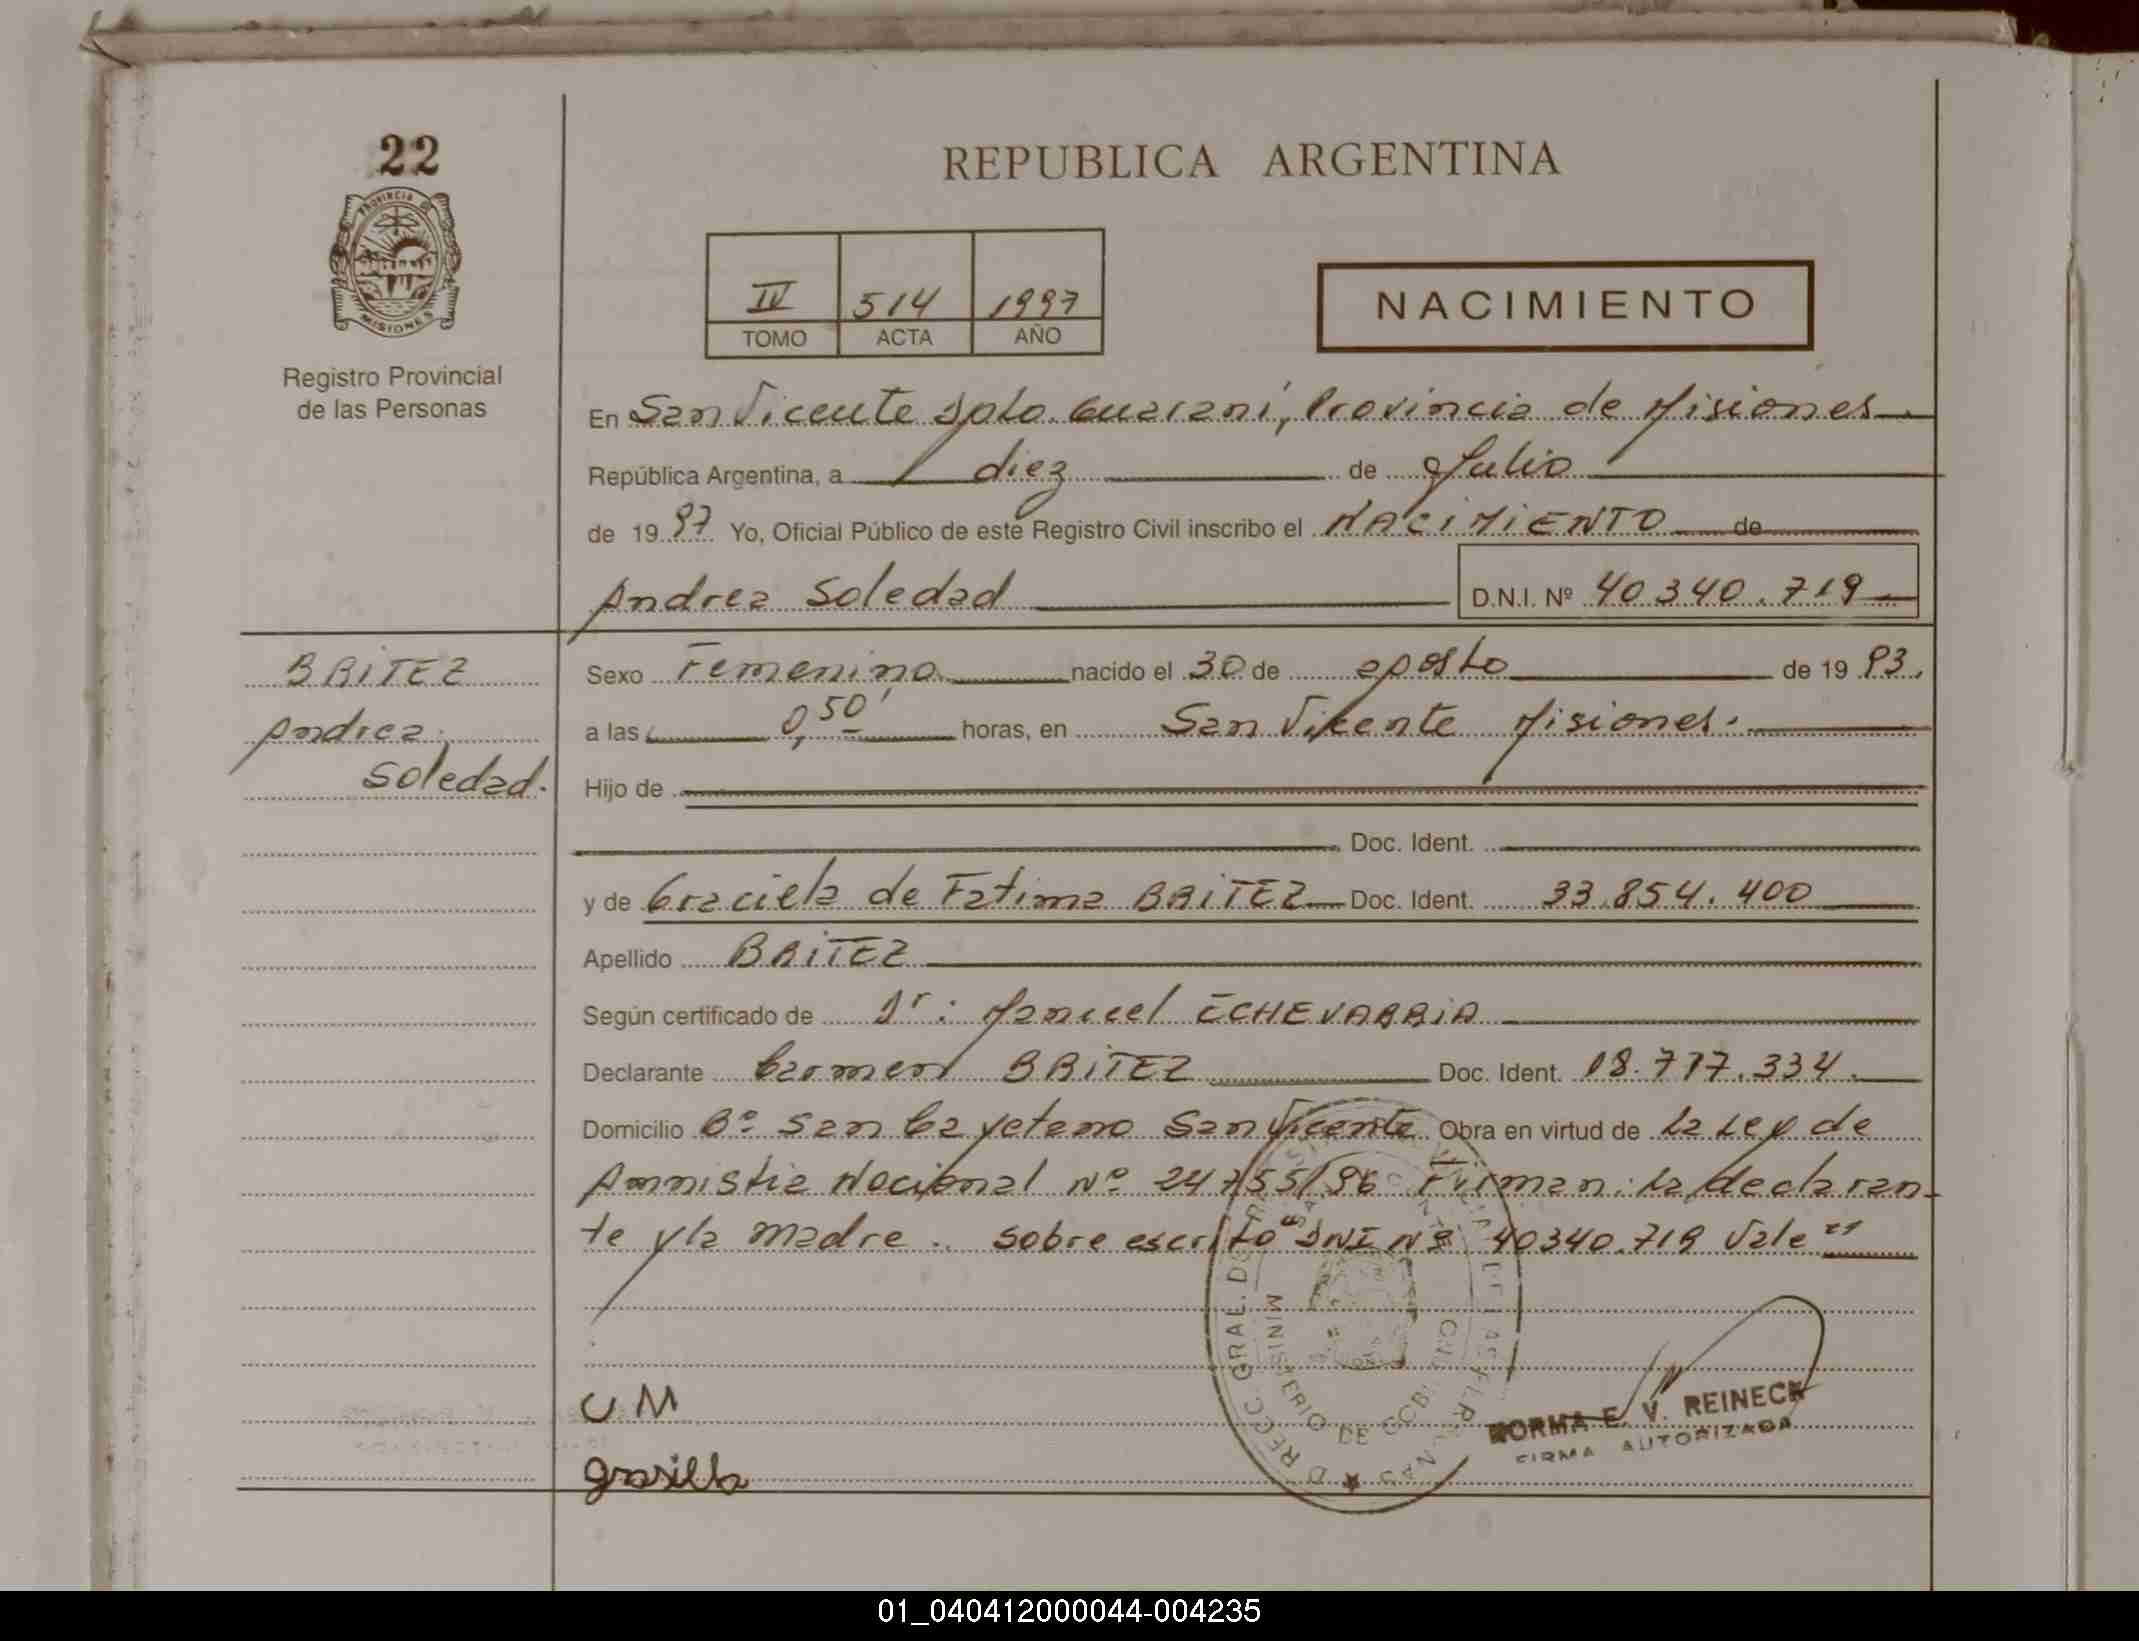 22
PROVINCIA DE
MISIONES
Registro Provincial
de las Personas
REPUBLICA ARGENTINA
IV 514 1997
TOMO ACTA AÑO
NACIMIENTO
En San Vicente Dpto. Guaraní, Provincia de Misiones
República Argentina, a diez de Julio
de 19 97 Yo, Oficial Público de este Registro Civil inscribo el NACIMIENTO de
Andrea Soledad D.N.I. Nº 40340.719
BRITEZ
Andrea
Soledad.
Sexo Femenino nacido el 30 de agosto de 19 93.
a las 0,50' horas, en San Vicente Misiones.
Hijo de
Doc. Ident.
y de Graciela de Fatima BRITEZ Doc. Ident. 33.854.400
Apellido BRITEZ
Según certificado de Dr: Manuel ECHEVARRIA
Declarante Carmen BRITEZ Doc. Ident. 18.717.334.
Domicilio Bº San Cayetano San Vicente Obra en virtud de la Ley de
Amnistia Nacional Nº 24755/96 Firman: la declaran-
te y la madre. Sobre escrito "DNI Nº 40340.719 Vale"
DIRECC. GRAL. DE
MINISTERIO DE GOB.
CM
NORMA E. V. REINECK
FIRMA AUTORIZADA
01_040412000044-004235